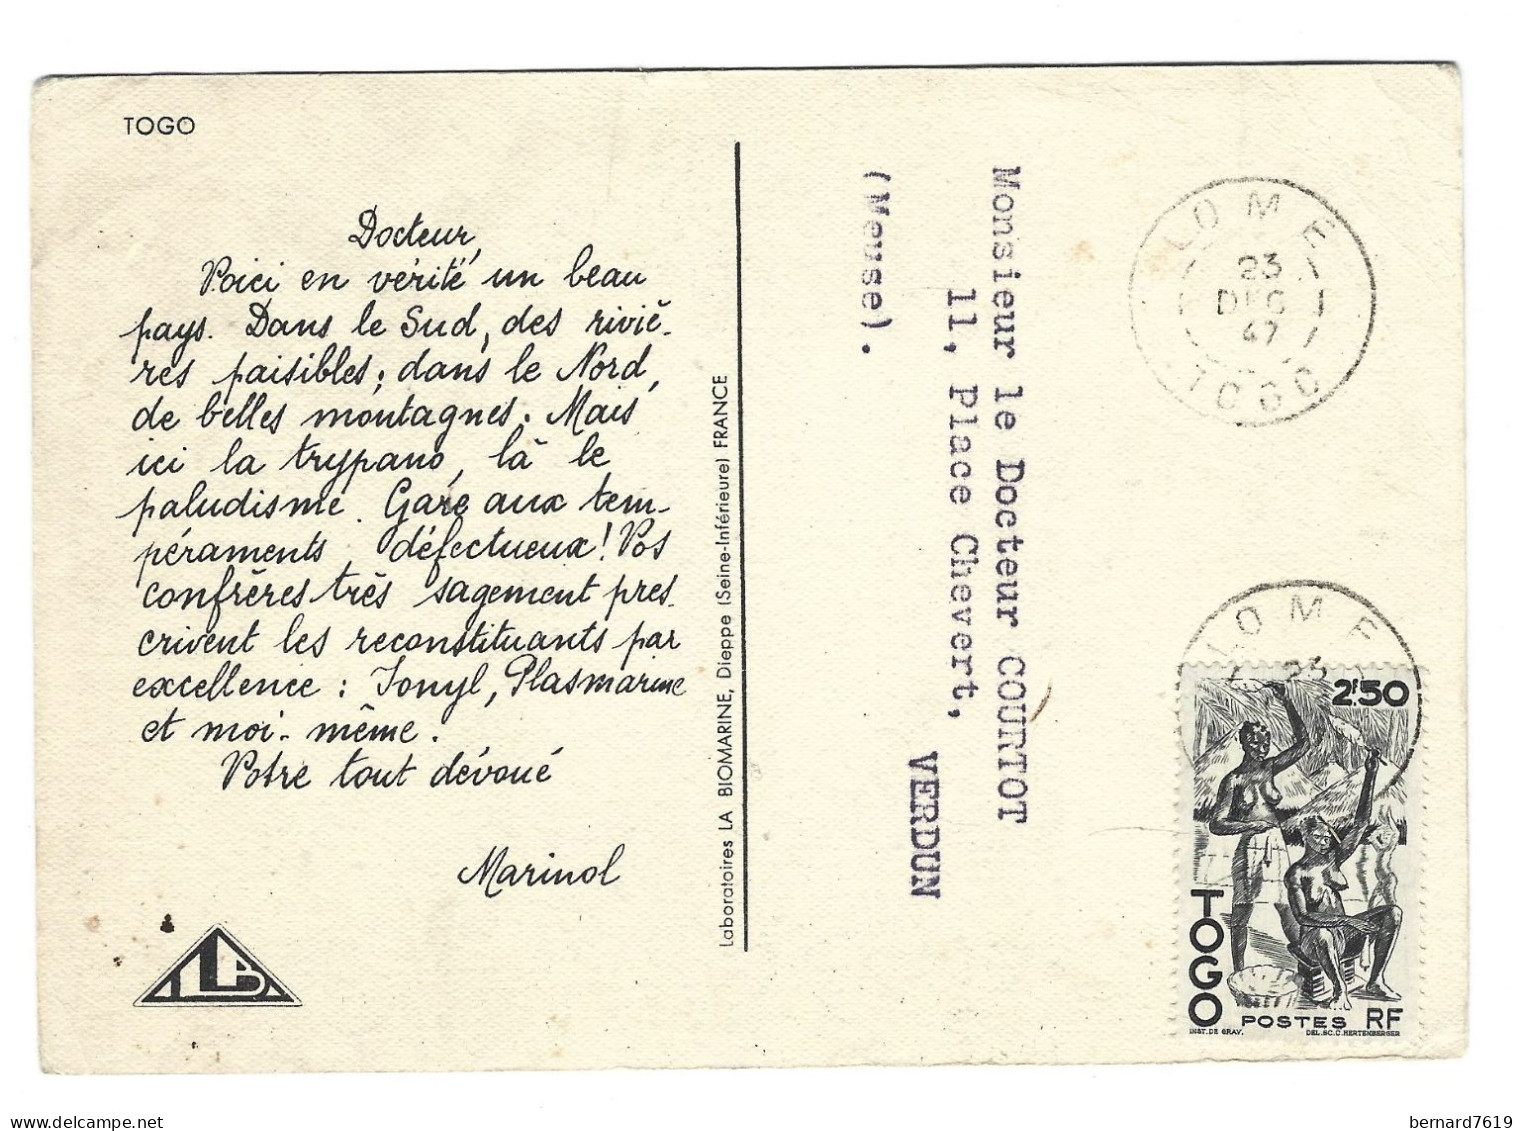 TOGO
Docteur,
Voici en vérité un beau
pays. Dans le Sud, des riviè-
res paisibles; dans le Nord,
de belles montagnes. Mais
ici la trypano, là le
paludisme. Gare aux tem-
péraments défectueux! Vos
confrères très sagement pres-
crivent les reconstituants par
excellence : Ionyl, Plasmarine
et moi-même.
Votre tout dévoué
Marinol
LB
Laboratoires LA BIOMARINE, Dieppe (Seine-Inférieure) FRANCE
Monsieur le Docteur COURTOT
11, Place Chevert,
VERDUN
(Meuse).
LOME
23
DEC
47
TOGO
LOME
23
2F50
TOGO
POSTES RF
INST. DE GRAV. DEL. SC. C. HERTENBERGER
bernard7619